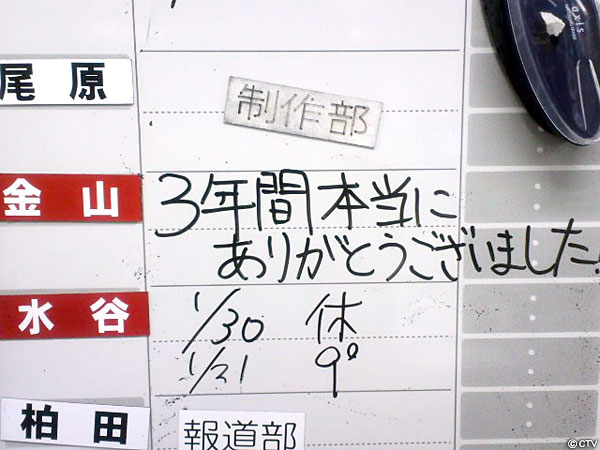 axis
尾原
制作部
金山
3年間本当に
ありがとうございました!
水谷
1/30 休
1/21 9°
柏田
報道部
©CTV